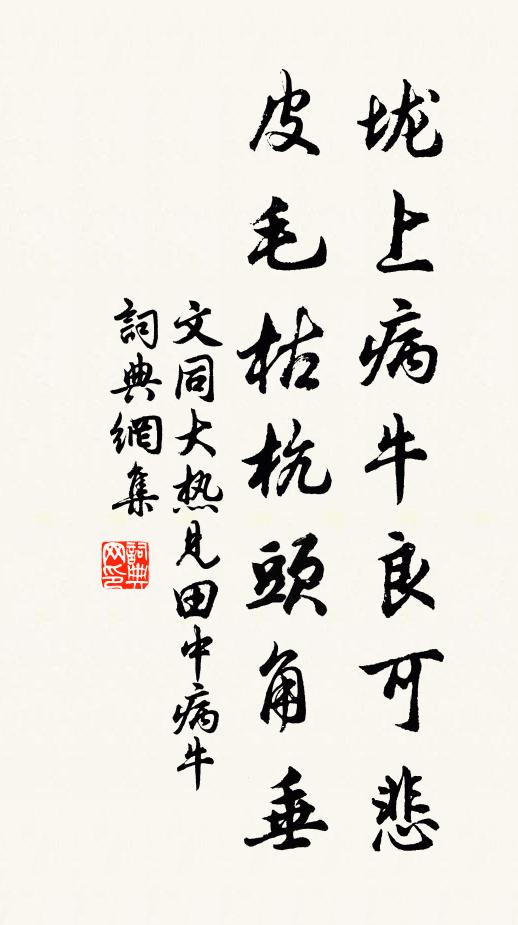 垅上病牛良可悲
皮毛枯杭頭角垂
文同大热见田中病牛
詞典網集
詞典网印